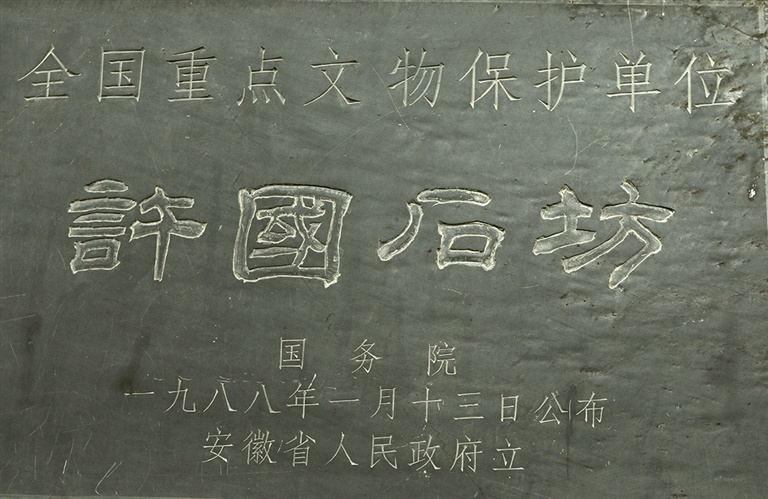 全国重点文物保护单位
許國石坊
国务院
一九八八年一月十三日公布
安徽省人民政府立